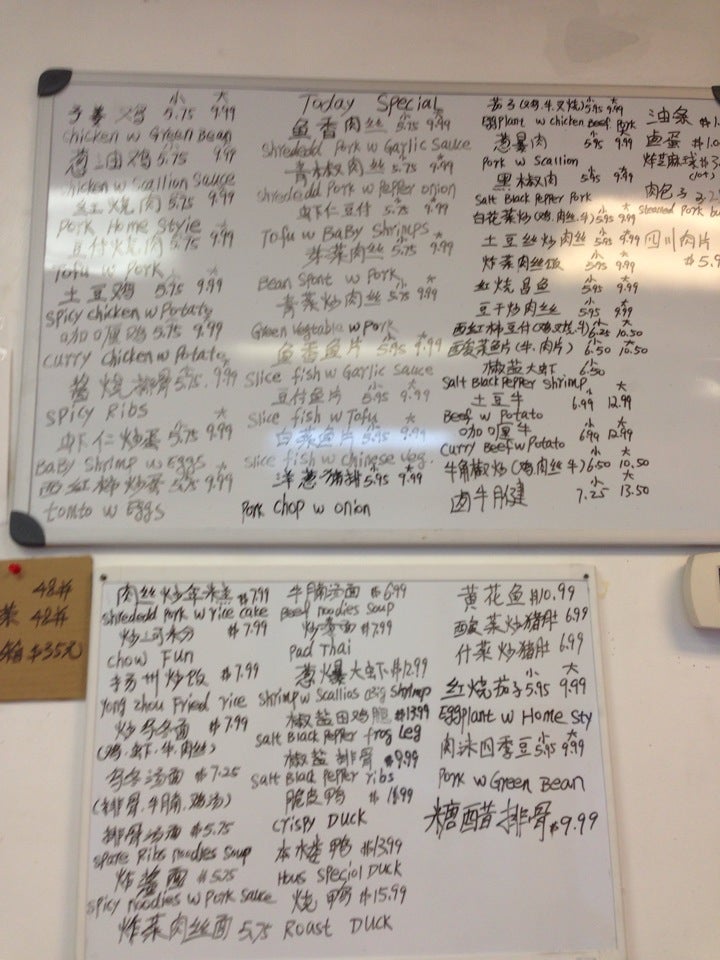 小 大
鸡 5.75 9.99
Chicken w Green Bean
葱油鸡 5.75 9.99
Chicken w Scallion Sauce
红烧肉 5.75 9.99
Pork Home Style
豆付烧肉 5.75 9.99
Tofu w Pork
土豆鸡 5.75 9.99
Spicy Chicken w Potato
咖喱鸡 5.75 9.99
Curry Chicken w Potato
酱烧排骨 5.75 9.99
Spicy Ribs
虾仁炒蛋 5.75 9.99
Baby Shrimp w Eggs
西红柿炒蛋 5.75 9.99
tomto w Eggs
Today Special
鱼香肉丝 5.75 9.99
Shrededd Pork w Garlic Sauce
青椒肉丝 5.75 9.99
shrededd Pork w Pepper onion
虾仁豆付 5.75 9.99
Tofu w BaBy Shrimps
芽菜肉丝 5.75 9.99
Bean Spont w Pork
青菜炒肉丝 5.75 9.99
Green Vegetabla w Pork
鱼香鱼片 5.95 9.99
Slice fish w Garlic Sauce
豆付鱼片 5.95 9.99
Slice fish w Tofu
白菜鱼片 5.95 9.99
Slice fish w chinese veg.
洋葱猪排 5.95 9.99
Pork Chop w onion
茄子(鸡.牛.叉烧) 5.95 9.99
Eggplant w chicken Beef Pork
葱爆肉 5.95 9.99
Pork w Scallion
黑椒肉 5.95 9.99
Salt Black Pepper Pork
白花菜炒(鸡.肉丝.牛) 5.95 9.99
土豆丝炒肉丝 5.95 9.99
炸菜肉丝饭 5.95 9.99
红烧昌鱼 5.95 9.99
豆干炒肉丝 5.95 9.99
西红柿豆付(鸡.叉烧.牛) 6.25 10.50
酸菜鱼片(牛.肉片) 6.50 10.50
椒盐大虾 6.50
Salt Black Pepper Shrimp
土豆牛 6.99 12.99
Beef w Potato
咖喱牛 6.99 12.99
Curry Beef w Potato
牛角椒炒(鸡.肉丝.牛) 6.50 10.50
卤牛月健 7.25 13.50
油条 $1.
卤蛋 $1.0
炸芝麻球 $3.
肉包子 3.2
Steamed Pork b
四川肉片
$5.9
48#
菜 48#
$35元
肉丝炒年糕 $7.99
shrededd Pork w rice cake
炒河粉 $7.99
Chow Fun
扬州炒饭 $7.99
Yong Zhou Fried rice
炒乌冬面 $7.99
(鸡.虾.牛.肉丝)
乌冬汤面 $7.25
(排骨.牛腩.鸡汤)
排骨汤面 $5.75
Spare Ribs noodles Soup
炸酱面 $5.75
Spicy noodles w Pork sauce
炸菜肉丝面 5.75
牛腩汤面 $6.99
Beef noodles Soup
$7.99
Pad Thai
葱爆大虾 $12.99
Shrimp w Scallios (Big Shrimp
椒盐田鸡腿 $13.99
Salt Black Pepper frog Leg
椒盐排骨 $9.99
Salt Black Pepper ribs
脆皮鸭 $18.99
Crispy Duck
本楼鸭 $13.99
Hous Speciol Duck
烧鸭 $15.99
Roast Duck
黄花鱼 $10.99
酸菜炒猪肚 6.99
什菜炒猪肚 6.99
红烧茄子 5.95 9.99
Eggplant w Home Sty
肉沫四季豆 5.95 9.99
Pork w Green Bean
糖醋排骨 $9.99